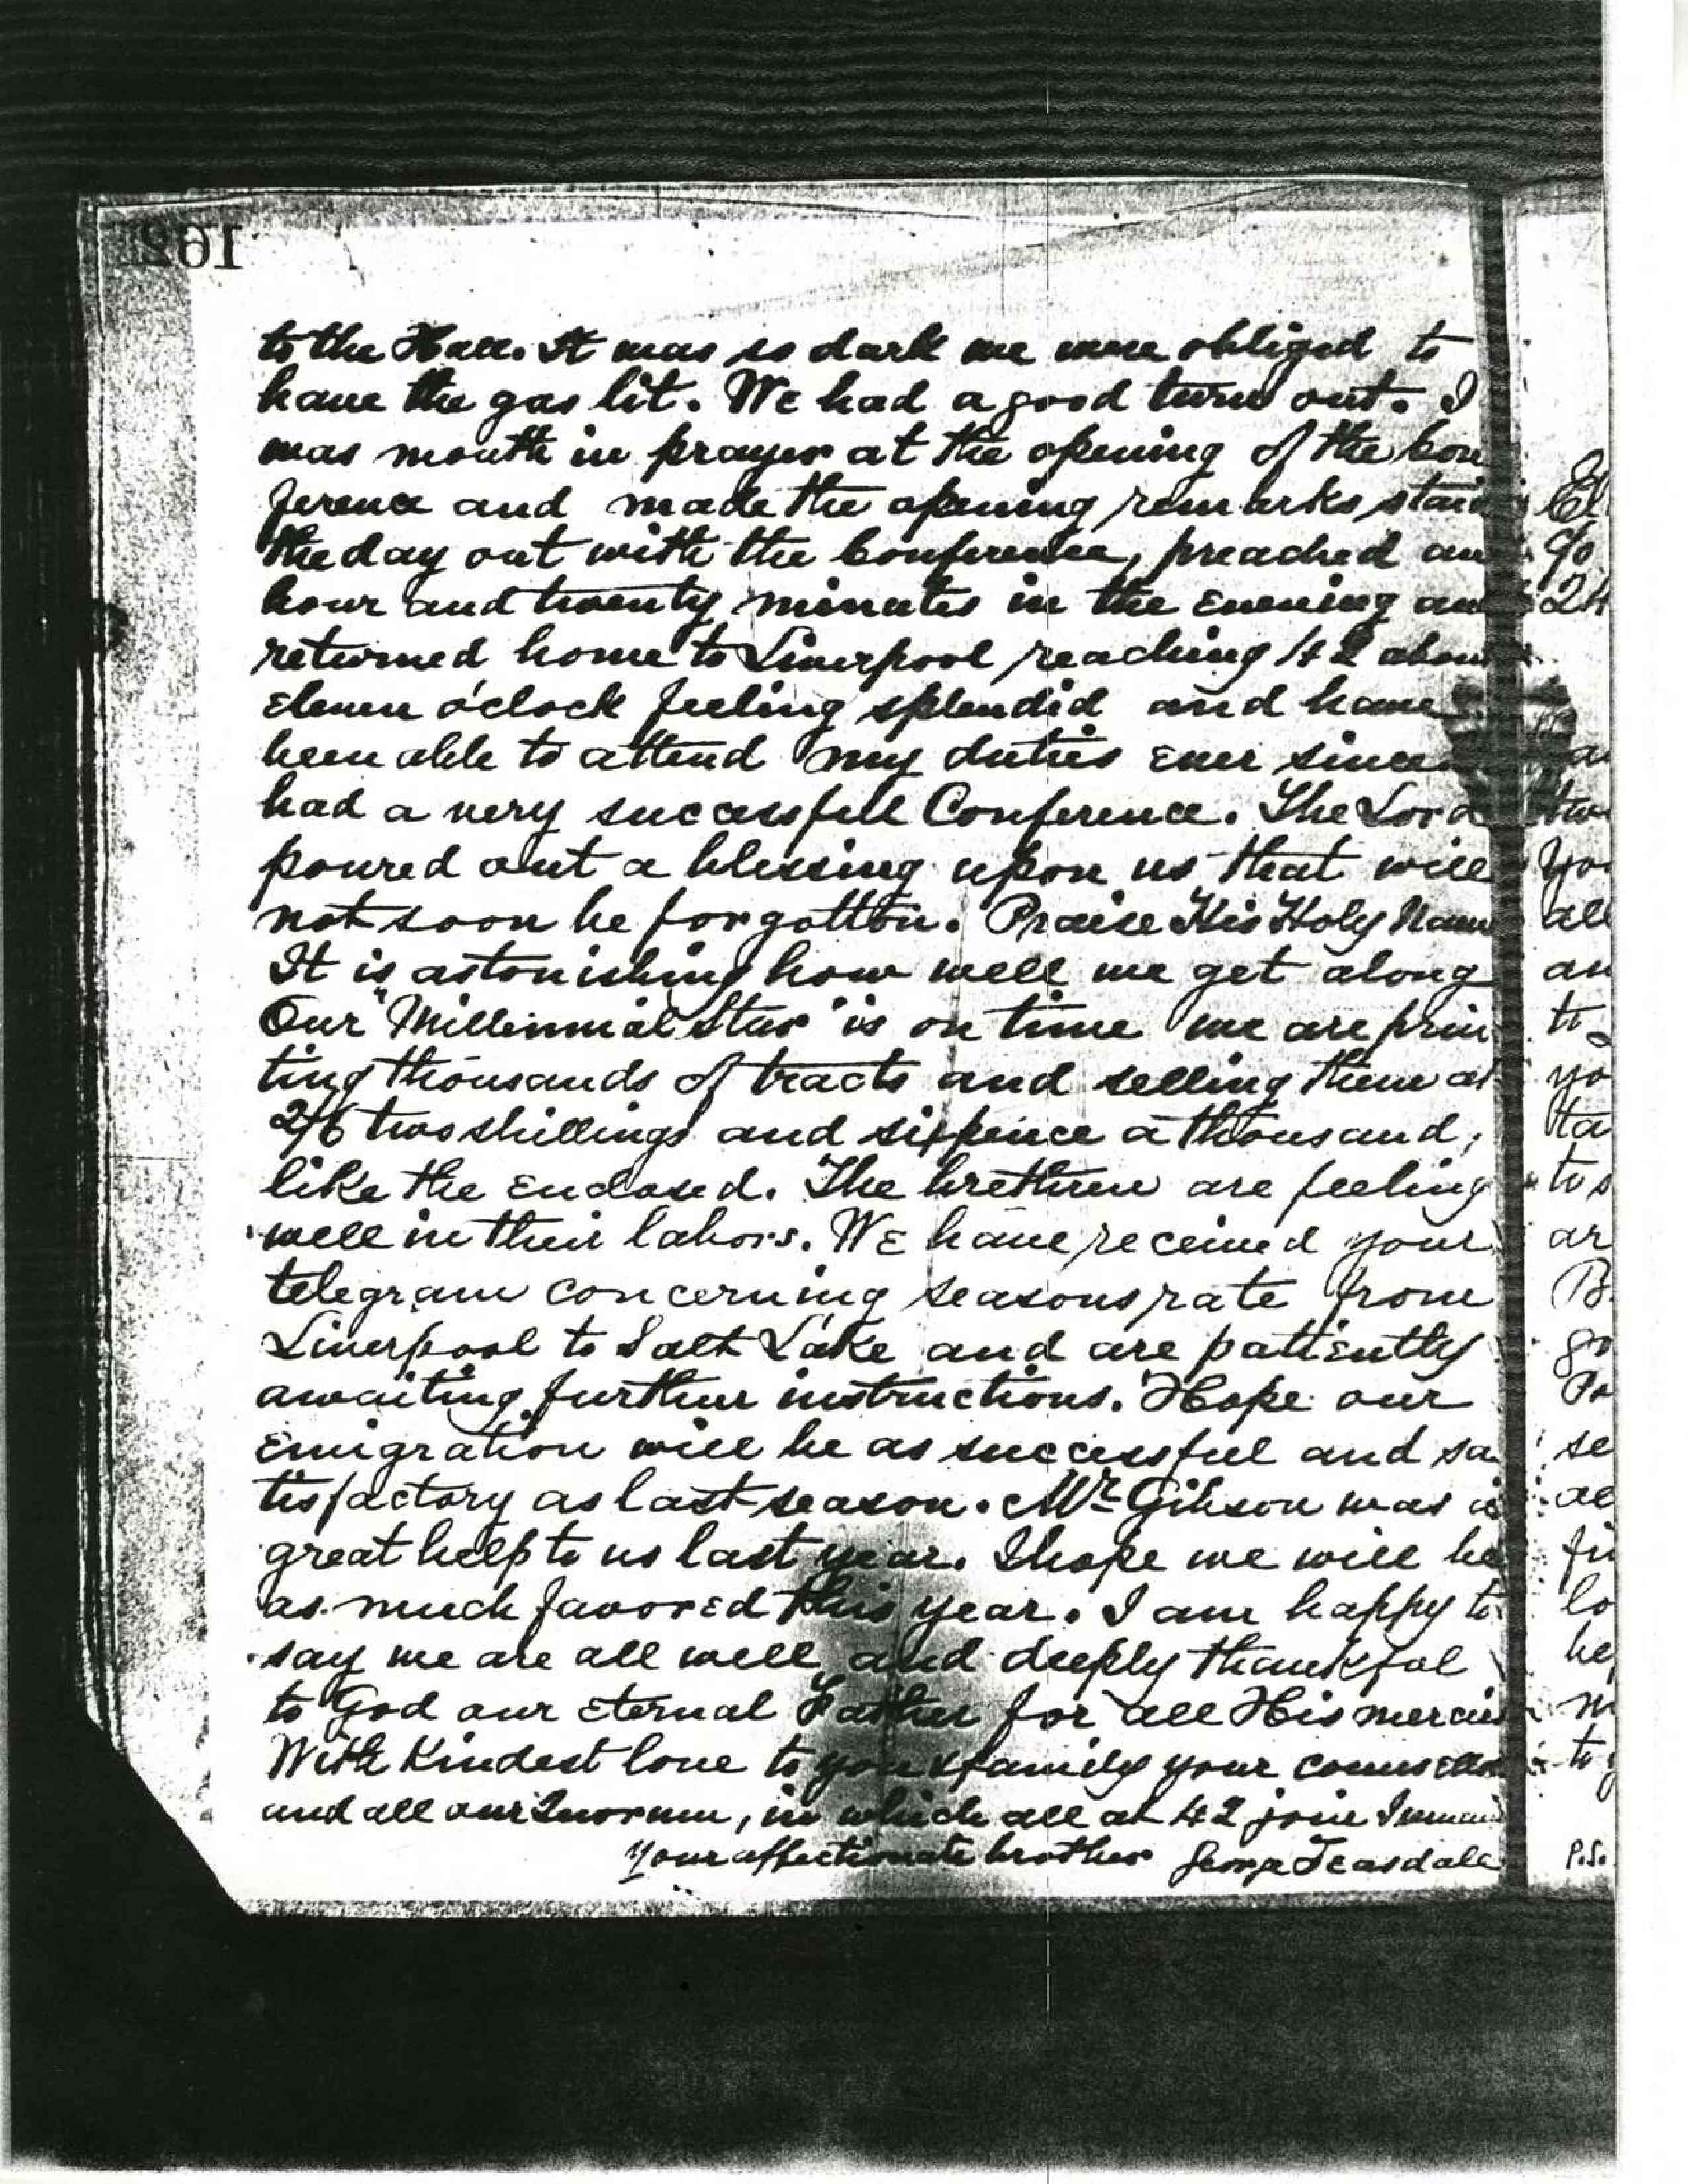 162
to the Hall. It was so dark we were obliged to
have the gas lit. We had a good turn out. I
was mouth in prayer at the opening of the Con
ference and made the opening remarks, staid
the day out with the Conference, preached an
hour and twenty minutes in the Evening and
returned home to Liverpool reaching 42 about
Eleven o'clock feeling splendid and have
been able to attend my duties Ever since
had a very successful Conference. The Lord
poured out a blessing upon us that will
not soon be forgotten. Praise His Holy Name
It is astonishing how well we get along
Our "Millennial Star" is on time we are prin
ting thousands of tracts and selling them at
2/6 two shillings and sixpence a thousand,
like the Enclosed. The brethren are feeling
well in their labors. We have received your
telegram concerning seasons rate from
Liverpool to Salt Lake and are patiently
awaiting further instructions. Hope our
Emigration will be as successful and sa
tisfactory as last season. Mr Gibson was a
great help to us last year. I hope we will be
as much favored this year. I am happy to
say we are all well and deeply thankful
to God our Eternal Father for all His mercies
With Kindest love to you & family your counsellors
and all our Quorum, in which all at 42 join I remain
Your affectionate brother George Teasdale
El
90
24
two
you
all
an
to
yo
ta
to s
ar
B.
go
Po
se
al
fu
lo
he
m
to y
P.S.